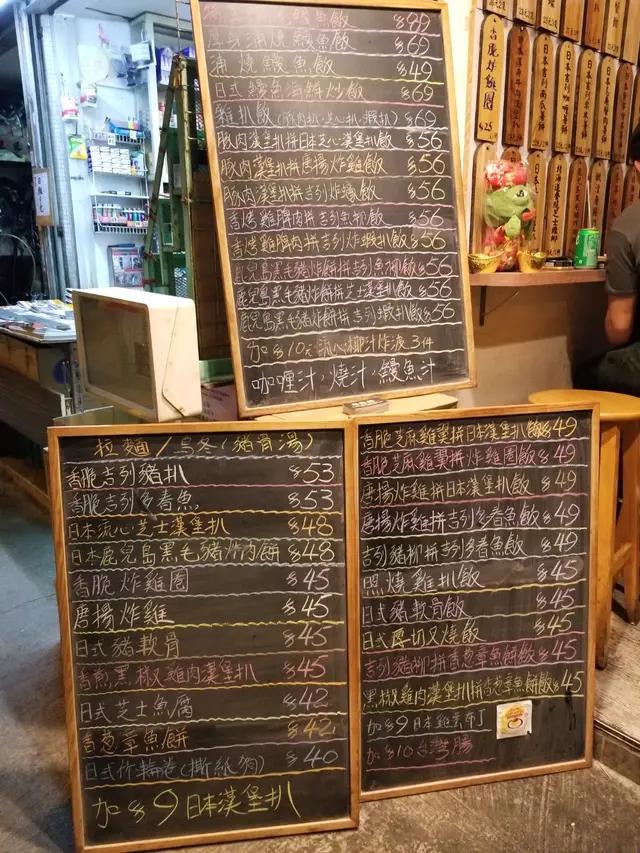 鰻魚飯 $89
厚身蒲燒鰻魚飯 $69
蒲燒鰻魚飯 $49
日式鰻魚海鮮炒飯 $69
雞扒飯 $69
豚肉漢堡扒拼日本芝心漢堡扒飯 $56
豚肉漢堡扒拼唐揚炸雞飯 $56
豚肉漢堡扒拼吉列炸蠔飯 $56
香烤雞髀肉拼吉列魚柳飯 $56
香烤雞髀肉拼吉列炸蝦扒飯 $56
鹿兒島黑毛豬炸餅拼吉列魚柳飯 $56
鹿兒島黑毛豬炸餅拼芝士漢堡扒飯 $56
鹿兒島黑毛豬炸餅拼吉列蝦扒飯 $56
加$10元 流心椰汁炸波 3件
咖喱汁,燒汁,鰻魚汁
拉麵/烏冬(豬骨湯)
香脆吉列豬扒 $53
香脆吉列多春魚 $53
日本流心芝士漢堡扒 $48
日本鹿兒島黑毛豬炸肉餅 $48
香脆炸雞圈 $45
唐揚炸雞 $45
日式豬軟骨 $45
香煎黑椒雞肉漢堡扒 $45
日式芝士魚腐 $42
香蔥章魚餅 $42
日式竹輪卷(撕紙狗) $40
加$9日本漢堡扒
香脆芝麻雞翼拼日本漢堡扒飯 $49
香脆芝麻雞翼拼炸雞圈飯 $49
唐揚炸雞拼日本漢堡扒飯 $49
唐揚炸雞拼吉列多春魚飯 $49
吉列豬柳拼吉列多春魚飯 $49
照燒雞扒飯 $45
日式豬軟骨飯 $45
日式厚切叉燒飯 $45
吉列豬柳拼香蔥章魚餅飯 $45
黑椒雞肉漢堡扒拼香蔥章魚餅飯 $45
加$9日本雞蛋布丁
加$10台灣腸
香脆炸雞圈
$25